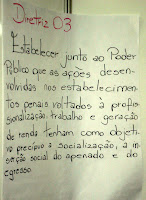 Diretriz 03
Estabelecer junto ao Poder
Público que as ações desen-
volvidas nos estabelecimen
tos penais voltados à profis-
sionalização trabalho e geração
de renda tenham como objeti
vo precípuo a socialização, a in
serção social do apenado e do
egresso